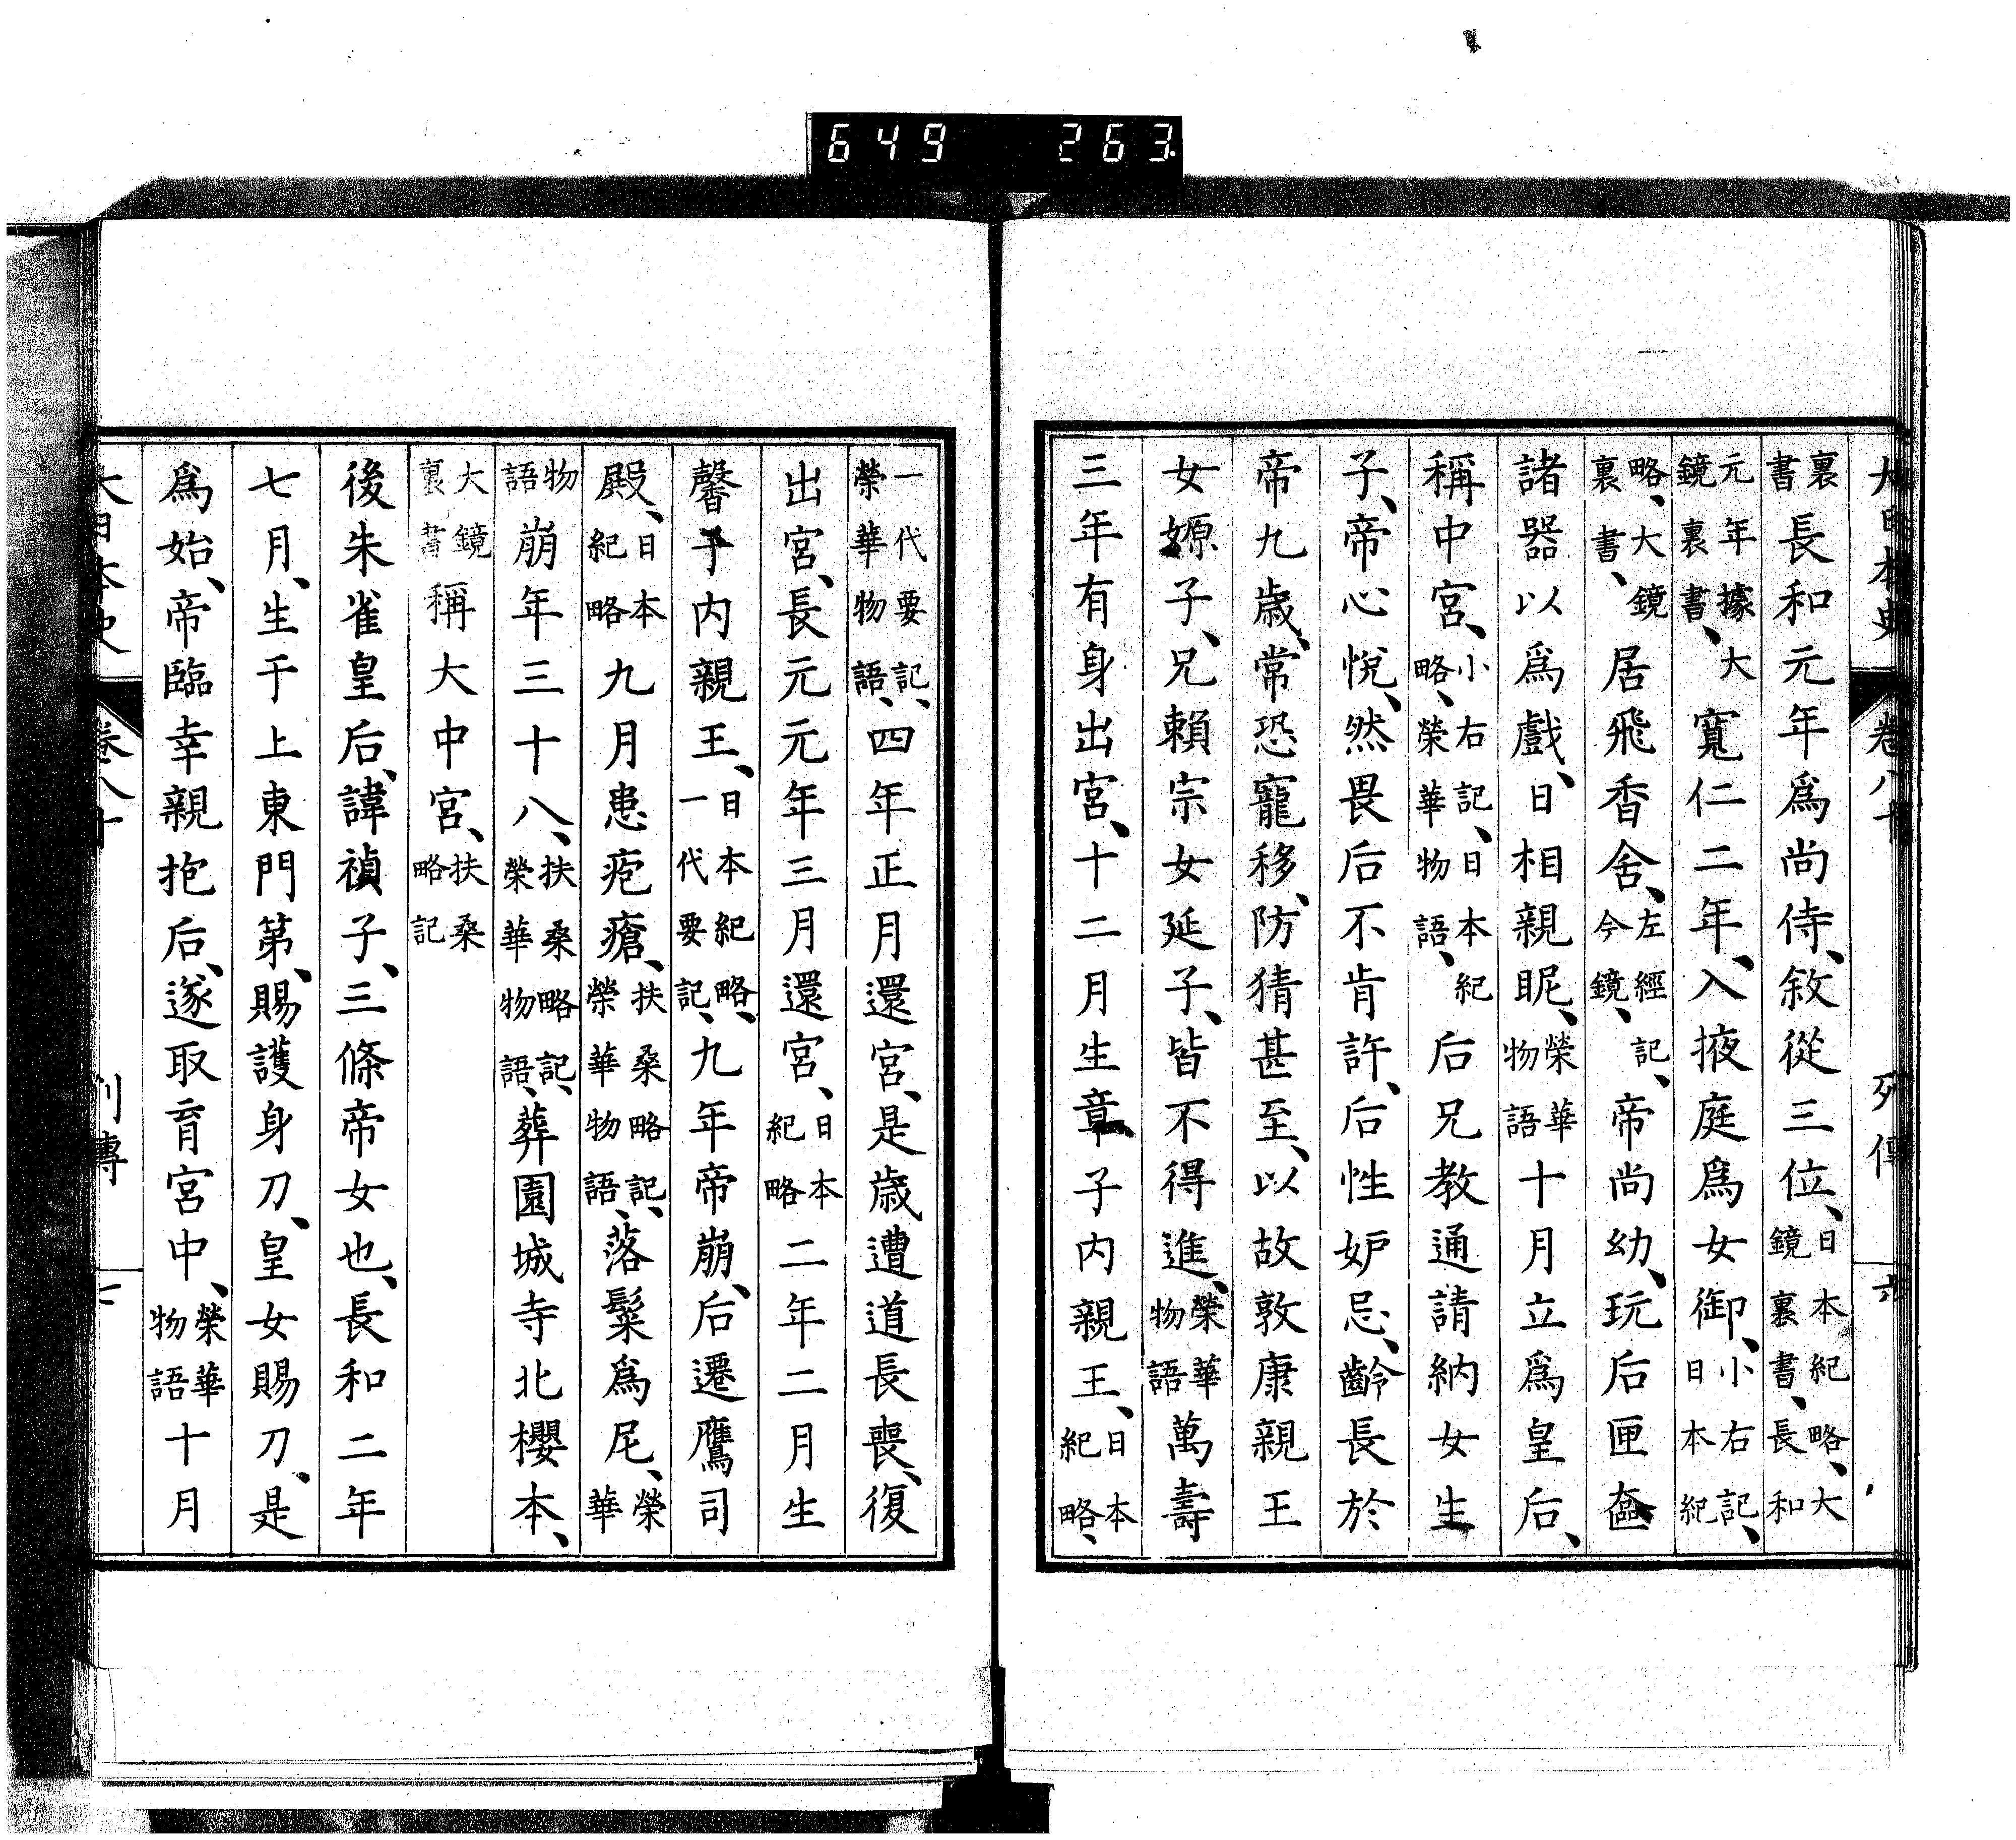 649 263
大日本史 卷八十 列傳 六
裏書長和元年爲尚侍、敘從三位、日本紀略、大鏡裏書、長和
元年據大鏡裏書、寬仁二年、入掖庭爲女御、小右記、日本紀
略、大鏡裏書、居飛香舍、左經記、今鏡、帝尚幼、玩后匣奩
諸器以爲戲、日相親昵、榮華物語十月立爲皇后、
稱中宮、小右記、日本紀略、榮華物語、后兄教通請納女生
子、帝心悅、然畏后不肯許、后性妒忌、齡長於
帝九歲、常恐寵移、防猜甚至、以故敦康親王
女嫄子、兄賴宗女延子、皆不得進、榮華物語萬壽
三年有身出宮、十二月生章子內親王、日本紀略、
一代要記、榮華物語、四年正月還宮、是歲遭道長喪、復
出宮、長元元年三月還宮、日本紀略二年二月生
馨子內親王、日本紀略、一代要記、九年帝崩、后遷鷹司
殿、日本紀略九月患疱瘡、扶桑略記、榮華物語、落髮爲尼、榮華
物語崩年三十八、扶桑略記、榮華物語、葬園城寺北櫻本、
大鏡裏書稱大中宮、扶桑略記
後朱雀皇后、諱禎子、三條帝女也、長和二年
七月、生于上東門第、賜護身刀、皇女賜刀、是
爲始、帝臨幸親抱后、遂取育宮中、榮華物語十月
大日本史 卷八十 列傳 七